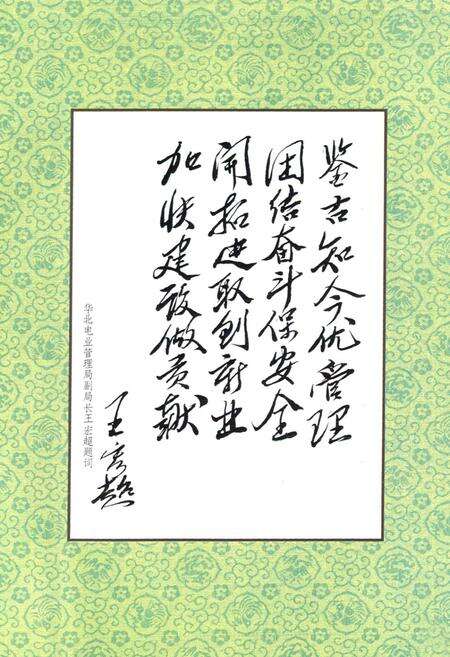 鉴古知今优管理
团结奋斗保安全
开拓进取创新业
加快建设做贡献
王宏超
华北电业管理局副局长王宏超题词